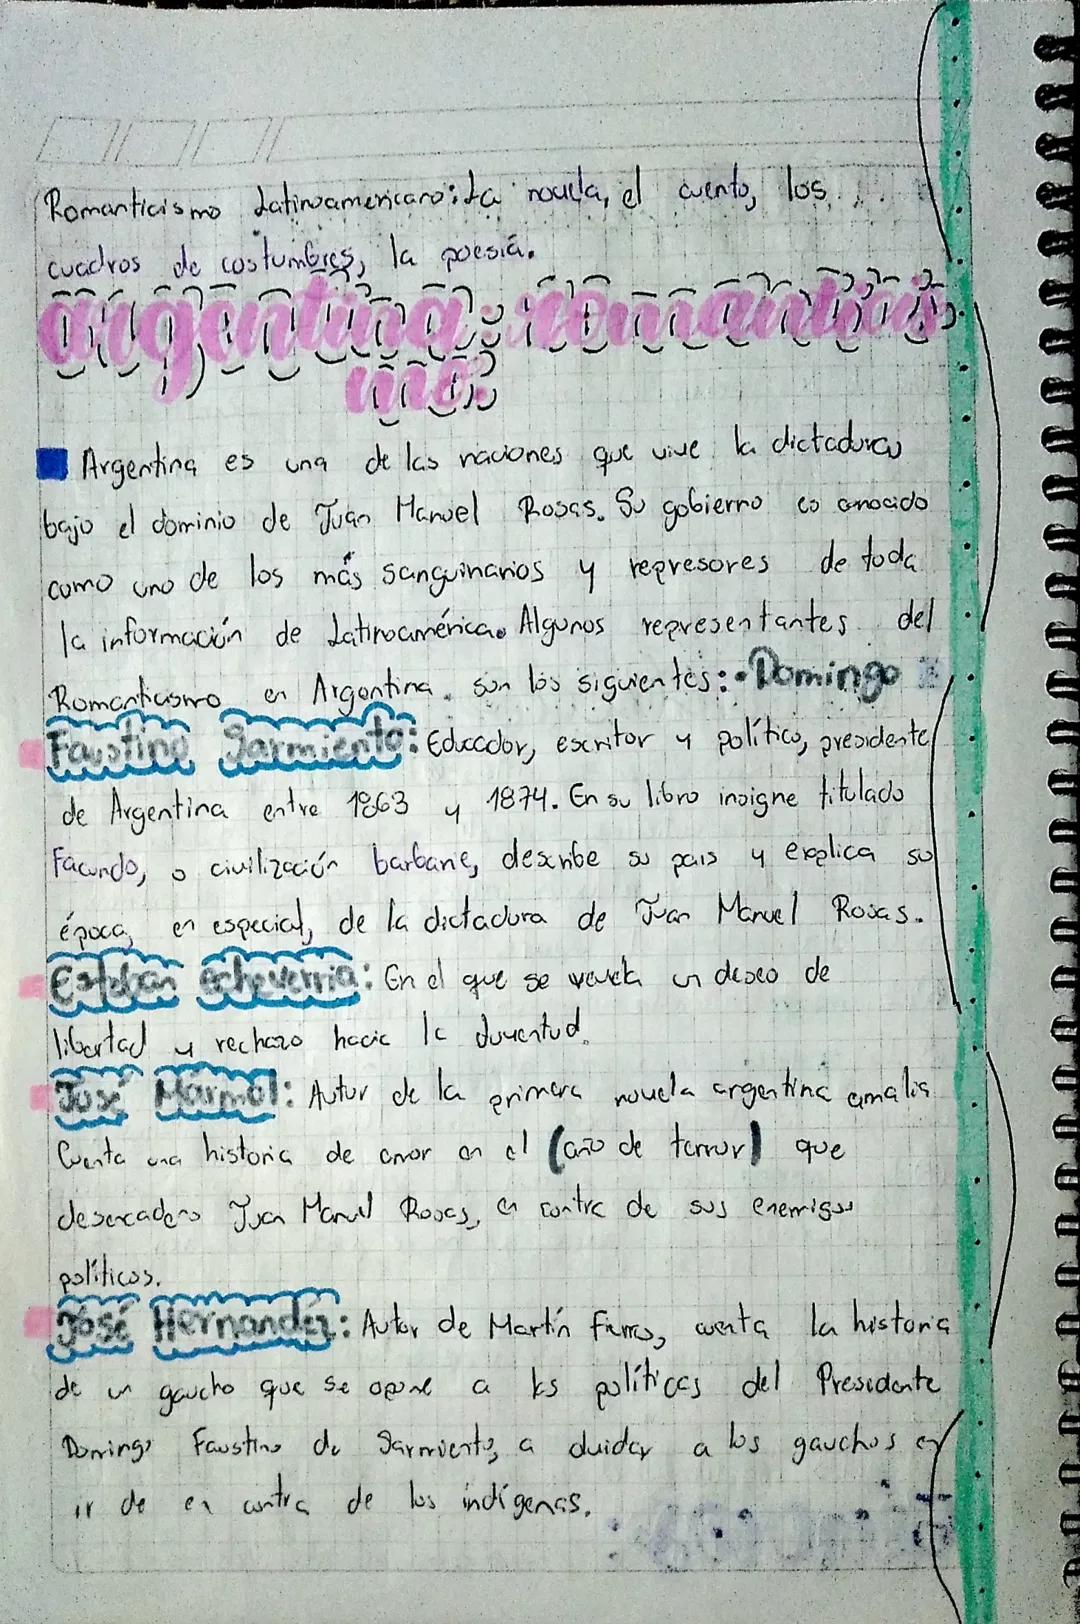 Romanticismo Latinoamericano: La novela, el cuento, los
cuadros de costumbres, la poesiá.
argentina: romanticis
mo:
Argentina es una de las naciones que vive la dictadura
bajo el dominio de Juan Manuel Rosas. Su gobierno es conocido
como uno de los más sanguinarios y represores de toda
la información de Latinoamérica. Algunos representantes del
Romanticismo en Argentina. son los siguientes: • Domingo
Faustino Sarmiento: Educador, escritor y político, presidente
de Argentina entre 1863 y 1874. En su libro insigne titulado
Facundo, o civilización barbarie, describe su país y explica su
época, en especial, de la dictadura de Juan Manuel Rosas.
Esteban echeverria: En el que se revela un deseo de
libertad y rechazo hacia la Juventud.
José Mármol: Autor de la primera novela argentina amalis.
Cuenta una historia de amor en el (año de terror) que
desencadeno Juan Manuel Rosas, en contra de sus enemigos
políticos.
José Hernandez: Autor de Martín Fierro, cuenta la historia
de un gaucho que se opone a las políticas del Presidente
Domingo Faustino de Sarmiento, a duidar a los gauchos en
ir de en contra de los indígenas.